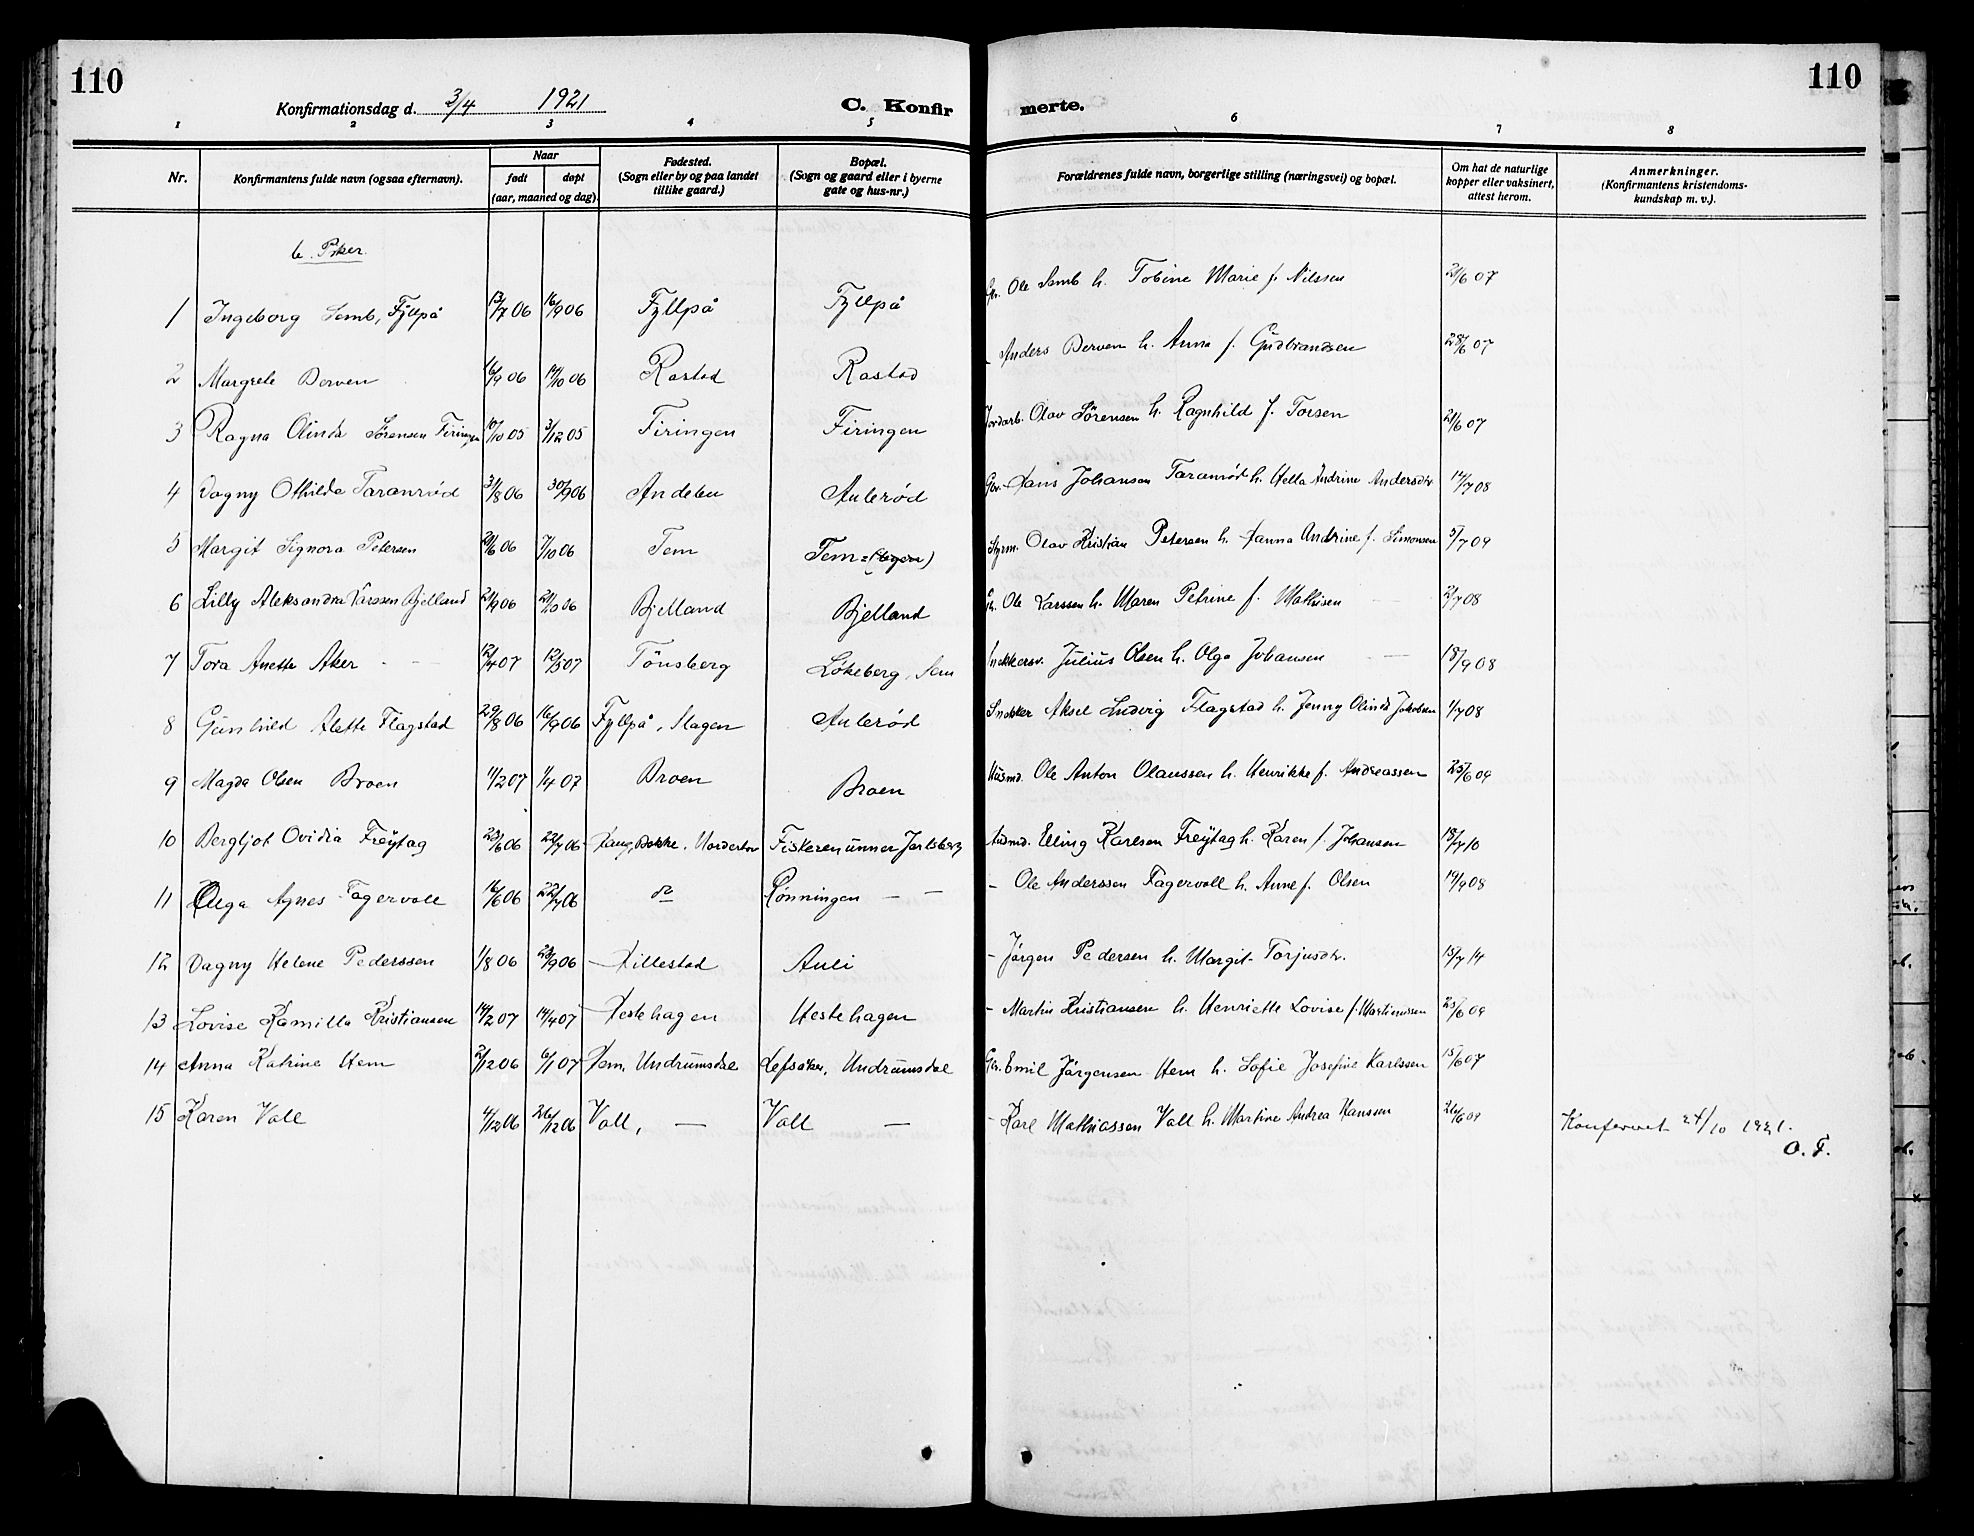 110
Konfirmationsdag d. 3/4 1921
C. Konfirmerte.
110
1 2 3 4 5 6 7 8
Nr. Konfirmantens fulde navn (ogsaa efternavn). Naar født døpt (aar, maaned og dag). Fødested. (Sogn eller by og paa landet tillike gaard.) Bopæl. (Sogn og gaard eller i byerne gate og hus-nr.) Forældrenes fulde navn, borgerlige stilling (næringsvei) og bopæl. Om hat de naturlige kopper eller vaksinert, attest herom. Anmerkninger. (Konfirmantens kristendoms-kundskap m. v.).
b. Piker.
1 Ingeborg Semb, Fyllpå 13/7 06 16/9 06 Fyllpå Fyllpå Gbr. Ole Semb h. Tobine Marie f. Nilssen 21/6 07
2 Margrete Berven 16/9 06 14/10 06 Rastad Rastad - Anders Berven h. Anna f. Gudbrandsen 28/6 07
3 Ragna Olinda Sørensen Firingen 10/10 05 3/12 05 Firingen Firingen Jordarb. Olav Sørensen h. Ragnhild f. Torsen 21/6 07
4 Dagny Othilde Taranrød 31/8 06 30/9 06 Andebu Aulerød Gbr. Hans Johansen Taranrød h. Hella Andrine Andersdtr 14/7 08
5 Margit Signora Petersen 20/6 06 7/10 06 Tem Tem= Styrm. Olav Kristian Petersen h. Hanna Andrine f. Simonsen 5/7 09
6 Lilly Aleksandra Larssen Bjelland 21/9 06 21/10 06 Bjelland Bjelland Ole Larssen h. Maren Petrine f. Mathisen — 2/7 08
7 Tora Anette Aker - — 12/4 07 12/5 07 Tönsberg Løkeberg, Sem Snekkersv. Julius Olsen h. Olga Johansen — 18/9 08
8 Gunhild Alette Flagstad 29/8 06 16/9 06 Fyllpå, Slagen Aulerød Snekker Aksel Ludvig Flagstad h. Jenny Olinda Jakobsen 1/7 08
9 Magda Olsen Broen 11/2 07 1/4 07 Broen Broen Husmd. Ole Anton Olaussen h. Henrikke f. Andreassen 25/6 09
10 Bergljot Ovidia Freÿtag 23/6 06 22/7 06 Haug, Bakke, Fiskerenunner Jarlsberg Husmd. Elling Karlsen Freÿtag h. Karen f. Johansen 18/7 10
11 Olga Agnes Fagervoll 16/6 06 22/7 06 do Rønningen — — - Ole Anderssen Fagervoll h. Anne f. Olsen 14/9 08
12 Dagny Helene Pederssen 1/8 06 23/9 06 Hillestad Auli - Jørgen Pedersen h. Margit Torjusdtr. 15/7 14
13 Lovise Kamilla Kristiansen 14/2 07 14/4 07 Hestehagen Hestehagen - Martin Kristiansen h. Henriette Lovise f. Martinussen 25/6 09
14 Anna Katrine Hem 2/12 06 6/1 07 Hem, Undrumsdal Lefsaker, Undrumsdal Gbr. Emil Jørgensen Hem h. Sofie Josefine Karlssen 15/6 07
15 Karen Vall 4/12 06 26/12 06 Vall, — Vall — - Karl Mathiassen Vall h. Martine Andrea Hanssen 26/6 09 Konfermert 24/10 1921.
O. F.